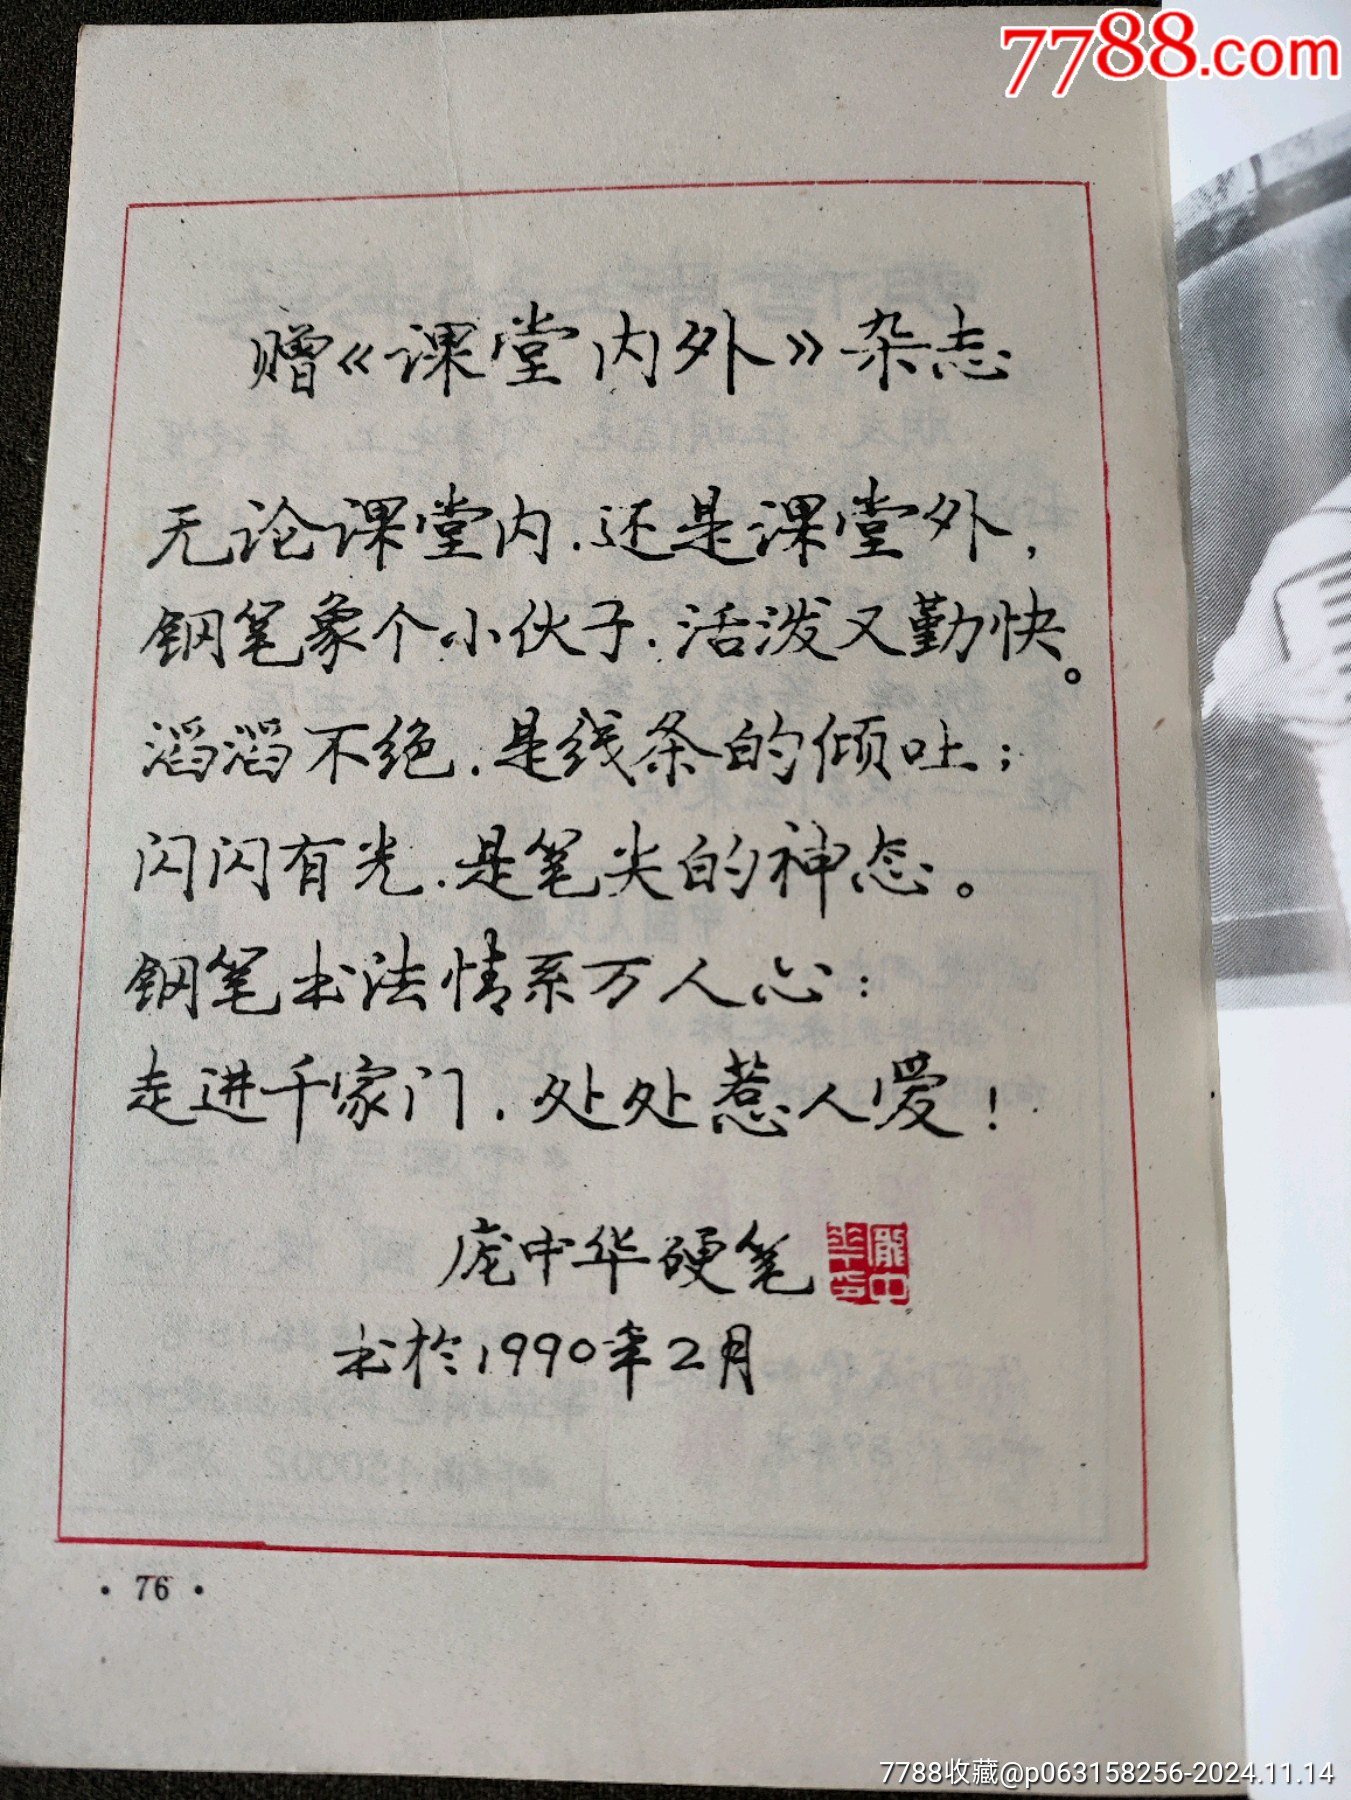 7788.com
赠《课堂内外》杂志
无论课堂内，还是课堂外，
钢笔象个小伙子，活泼又勤快。
滔滔不绝，是线条的倾吐；
闪闪有光，是笔尖的神态。
钢笔书法情系万人心：
走进千家门，处处惹人爱！
庞中华硬笔
书於1990年2月
· 76 ·
7788收藏@p063158256-2024.11.14